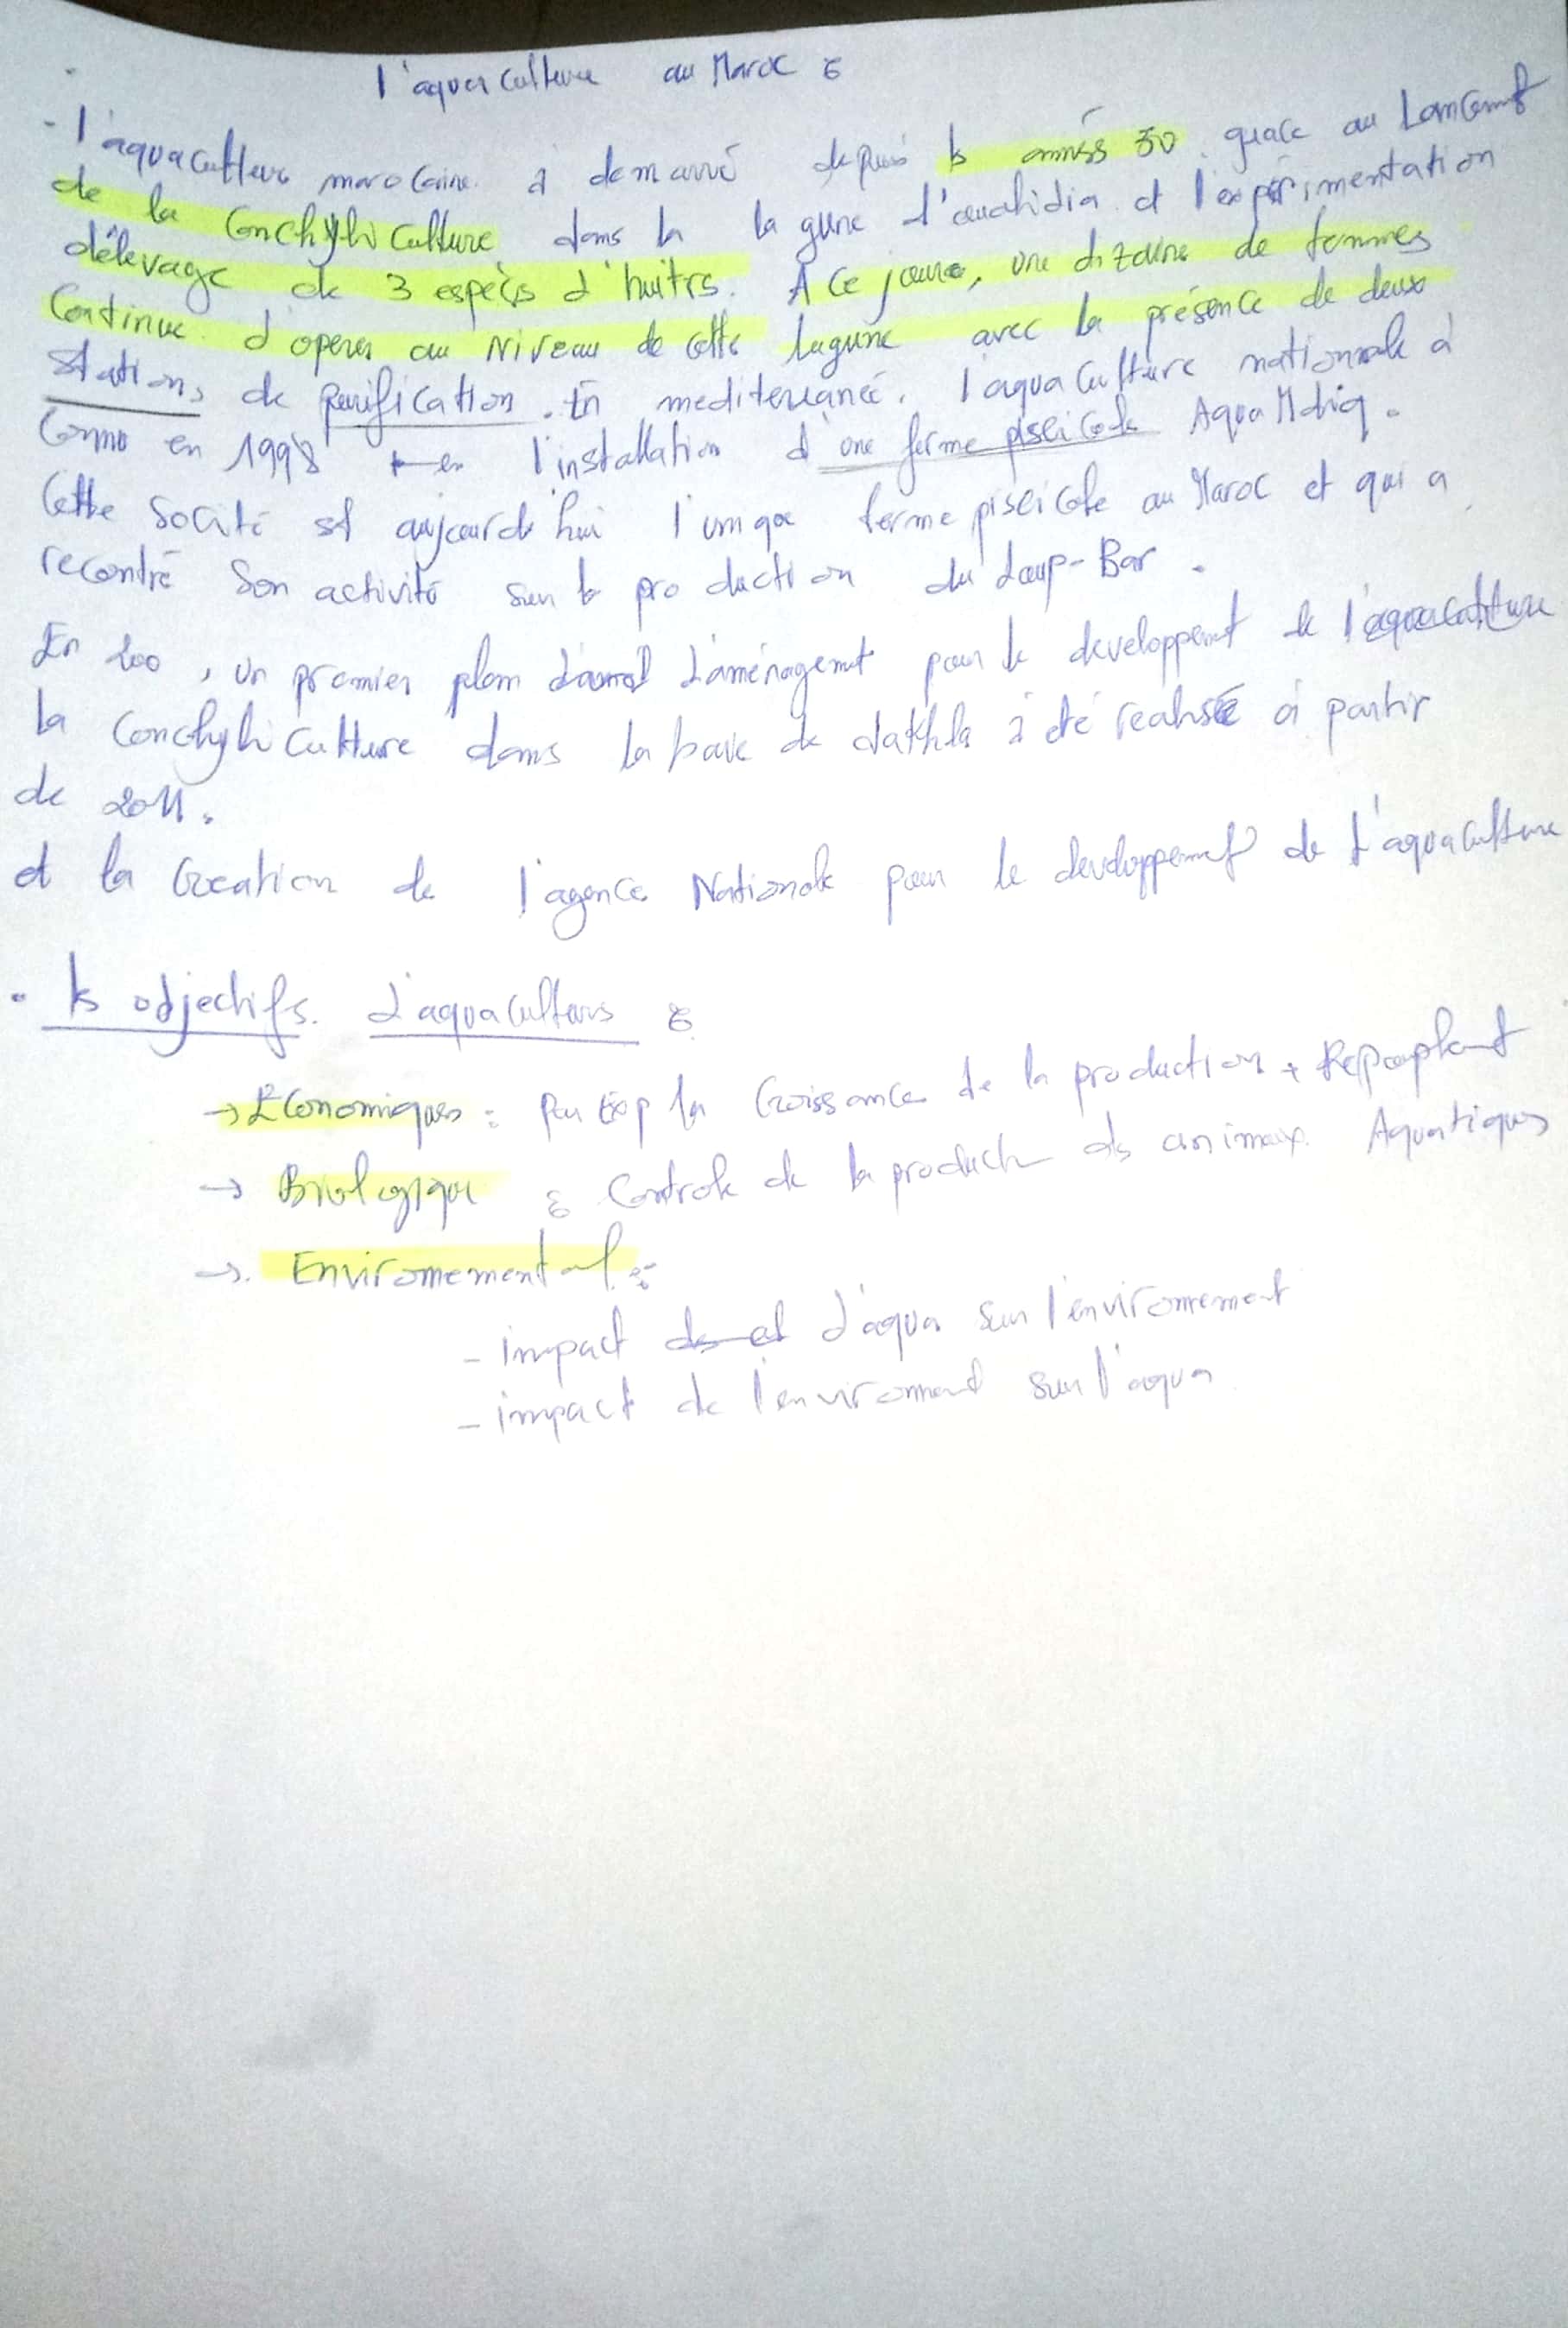 l'aquaculture au Maroc :
- l'aquaculture marocaine à demarré depuis les années 50 grace au Lancement
de la Conchyliculture dans la lagune d'oualidia et l'expérimentation
délevage de 3 espèces d'huitres. A ce jour, une dizaine de fermes
Continue d'operer au Niveau de cette lagune avec la présence de deux
Stations de purification. En mediterranée, l'aquaculture nationale à
connu en 1998 l'installation d'une ferme piscicole Aqua Mdiq.
Cette Société est aujourd'hui l'unique ferme piscicole au Maroc et qui a
recentré Son activité sur la production du Loup-Bar.
En 200, un premier plan d'aménagement pour le developpement de l'aquaculture
la Conchyliculture dans la baie de dakhla à été realisée à partir
de 2011.
et la Creation de l'agence Nationale pour le developpement de l'aquaculture
• les objectifs d'aquaculture :
→ Economiques : Par Exp la Croissance de la production + Repeuplement
→ Biologique : Controle de la production des animaux Aquatiques
→ Enviromemental :
- impact d'aqua sur l'environnement
- impact de l'enviroment sur l'aqua